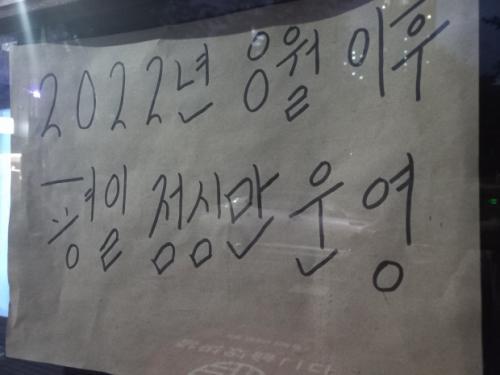 2022년 8월 이후
평일 점심만 운영